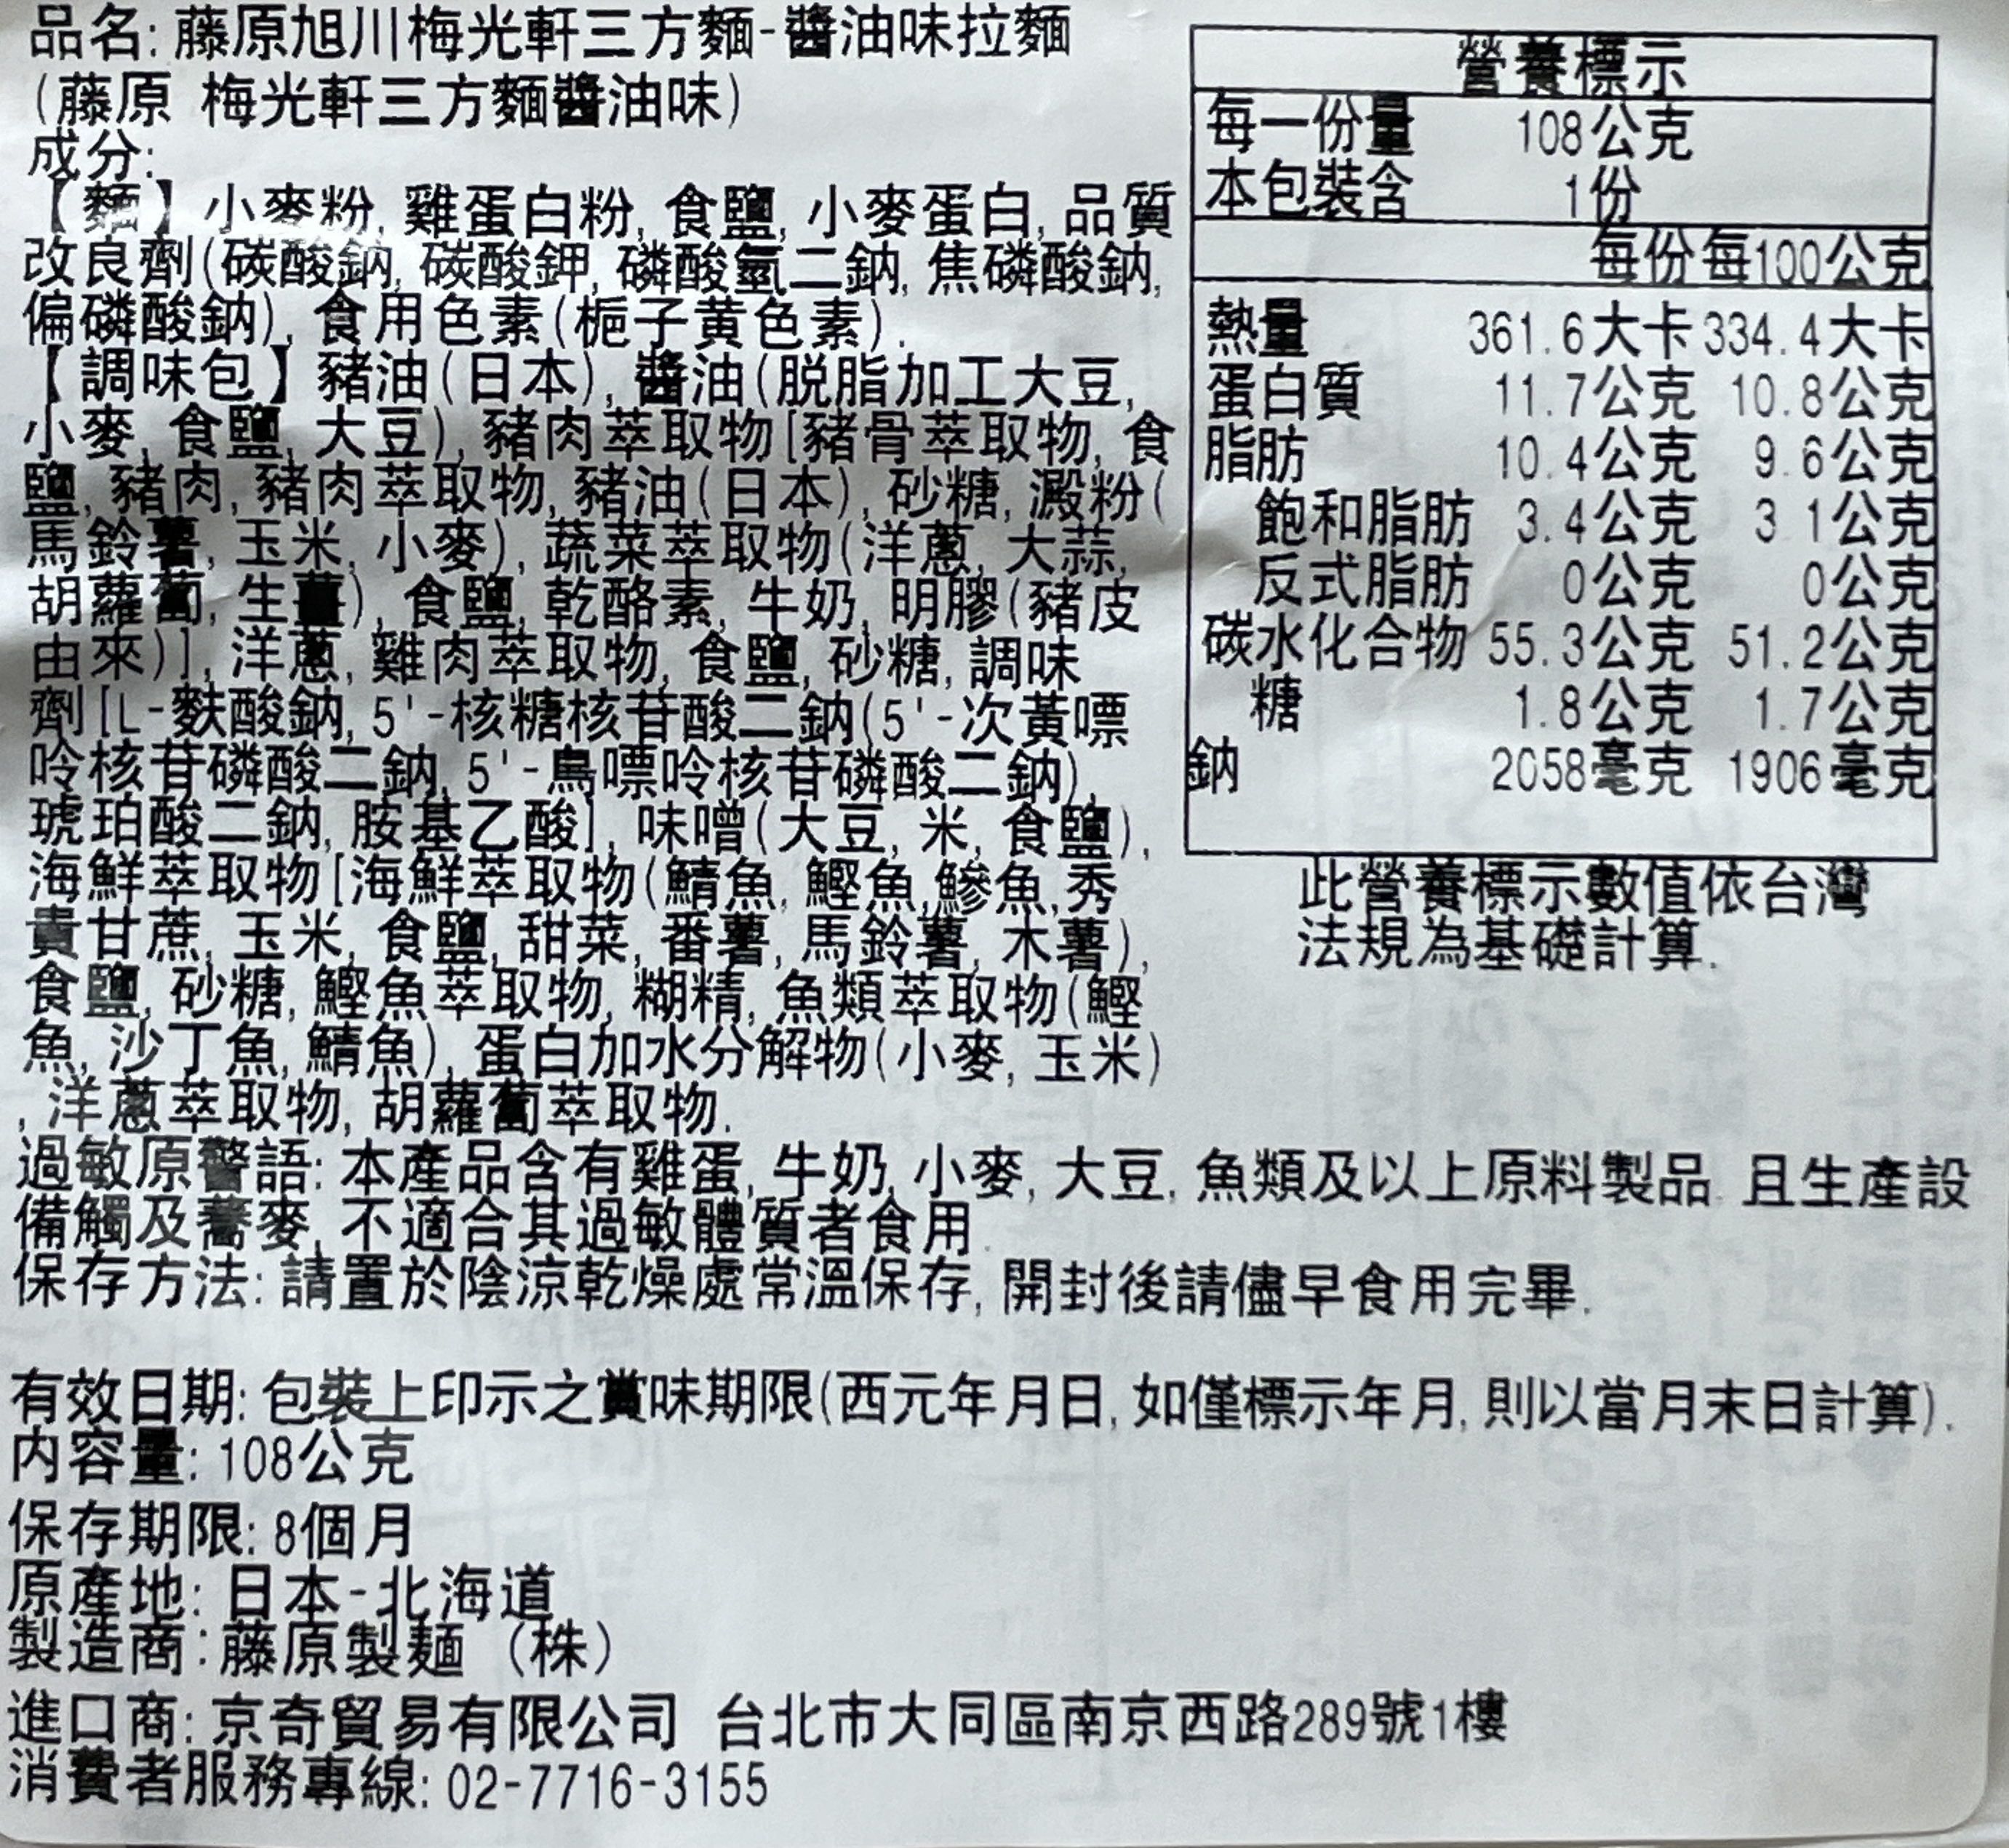 品名: 藤原旭川梅光軒三方麵-醬油味拉麵
(藤原 梅光軒三方麵醬油味)
成分:
【麵】小麥粉, 雞蛋白粉, 食鹽, 小麥蛋白, 品質
改良劑(碳酸鈉, 碳酸鉀, 磷酸氫二鈉, 焦磷酸鈉,
偏磷酸鈉), 食用色素(梔子黃色素).
【調味包】豬油(日本), 醬油(脫脂加工大豆,
小麥, 食鹽, 大豆), 豬肉萃取物[豬骨萃取物, 食
鹽, 豬肉, 豬肉萃取物, 豬油(日本), 砂糖, 澱粉(
馬鈴薯, 玉米, 小麥), 蔬菜萃取物(洋蔥, 大蒜,
胡蘿蔔, 生薑), 食鹽, 乾酪素, 牛奶, 明膠(豬皮
由來)], 洋蔥, 雞肉萃取物, 食鹽, 砂糖, 調味
劑[L-麩酸鈉, 5'-核糖核苷酸二鈉(5'-次黃嘌
呤核苷磷酸二鈉, 5'-鳥嘌呤核苷磷酸二鈉),
琥珀酸二鈉, 胺基乙酸], 味噌(大豆, 米, 食鹽),
海鮮萃取物[海鮮萃取物(鯖魚, 鰹魚, 鰺魚, 秀
貴甘蔗, 玉米, 食鹽, 甜菜, 番薯, 馬鈴薯, 木薯),
食鹽, 砂糖, 鰹魚萃取物, 糊精, 魚類萃取物(鰹
魚, 沙丁魚, 鯖魚), 蛋白加水分解物(小麥, 玉米)
, 洋蔥萃取物, 胡蘿蔔萃取物.
過敏原警語: 本產品含有雞蛋, 牛奶, 小麥, 大豆, 魚類及以上原料製品. 且生產設
備觸及蕎麥, 不適合其過敏體質者食用.
保存方法: 請置於陰涼乾燥處常溫保存, 開封後請儘早食用完畢.
有效日期: 包裝上印示之賞味期限(西元年月日, 如僅標示年月, 則以當月末日計算).
內容量: 108公克
保存期限: 8個月
原產地: 日本-北海道
製造商: 藤原製麺 (株)
進口商: 京奇貿易有限公司 台北市大同區南京西路289號1樓
消費者服務專線: 02-7716-3155
營養標示
每一份量 108公克
本包裝含 1份
每份 每100公克
熱量 361.6大卡 334.4大卡
蛋白質 11.7公克 10.8公克
脂肪 10.4公克 9.6公克
飽和脂肪 3.4公克 3.1公克
反式脂肪 0公克 0公克
碳水化合物 55.3公克 51.2公克
糖 1.8公克 1.7公克
鈉 2058毫克 1906毫克
此營養標示數值依台灣
法規為基礎計算.